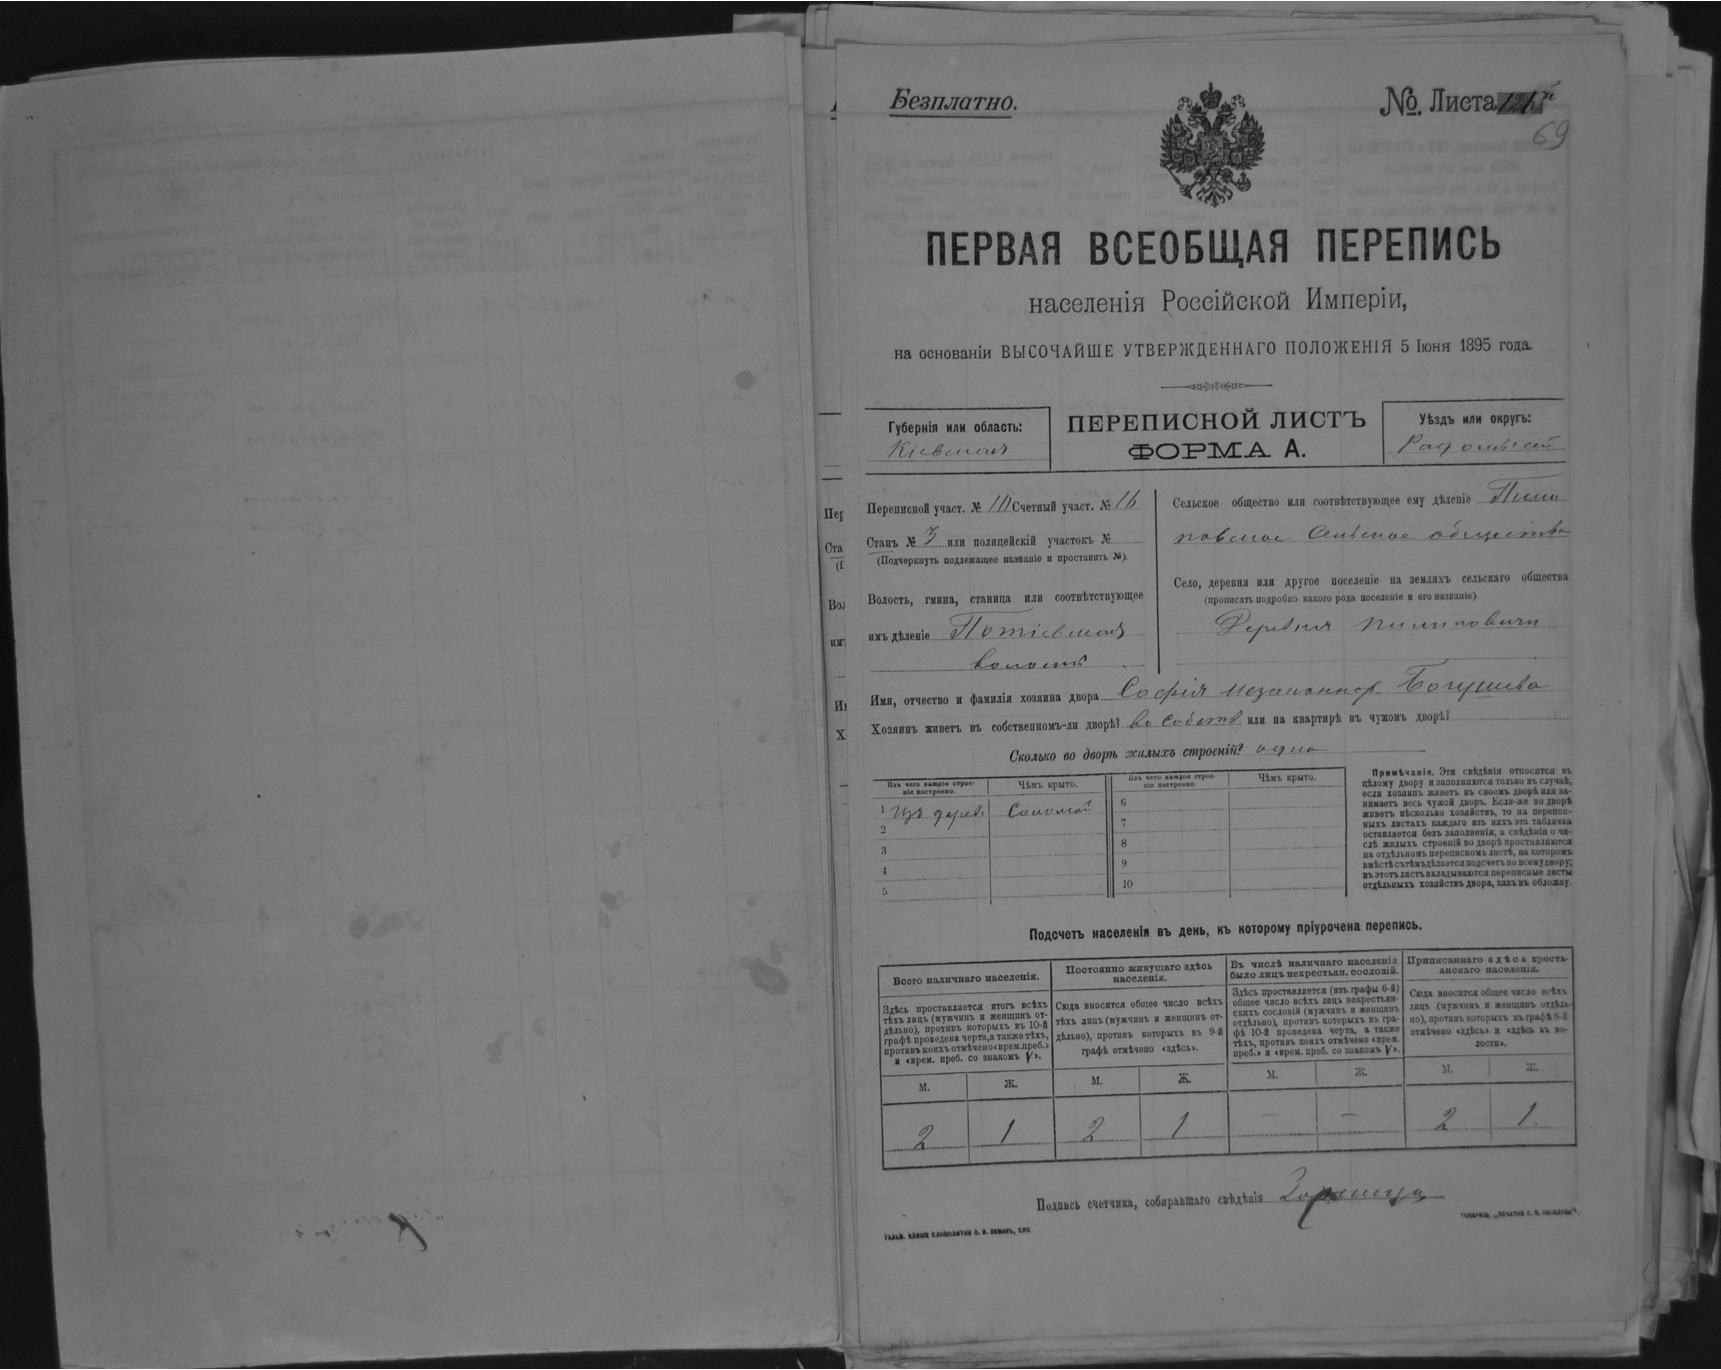 Безплатно.
№ Листа
69
ПЕРВАЯ ВСЕОБЩАЯ ПЕРЕПИСЬ
населенія Россійской Имперіи,
на основаніи ВЫСОЧАЙШЕ УТВЕРЖДЕННАГО ПОЛОЖЕНІЯ 5 Іюня 1895 года.
Губернія или область:
Кіевская
ПЕРЕПИСНОЙ ЛИСТЪ
ФОРМА А.
Уѣздъ или округъ:
Переписной участ. № 10 Счетный участ. № 16
Станъ № 3 или полицейскій участокъ №
(Подчеркнуть подлежащее названіе и проставить №).
Волость, гмина, станица или соотвѣтствующее
имъ дѣленіе Потіевская
волость
Сельское общество или соотвѣтствующее ему дѣленіе Пили
повское Сельское общество
Село, деревня или другое поселеніе на земляхъ сельскаго общества
(прописать подробно какого рода поселеніе и его названіе)
Деревня Пилиповичи
Имя, отчество и фамилія хозяина двора Софія
Хозяинъ живетъ въ собственномъ-ли дворѣ? въ собств или на квартирѣ въ чужомъ дворѣ?
Сколько во дворѣ жилыхъ строеній? одно
Изъ чего каждое строе-
ніе построено.
Чѣмъ крыто.
Изъ чего каждое строе-
ніе построено.
Чѣмъ крыто.
1 Изъ дерев. Соломой
2
3
4
5
6
7
8
9
10
Примѣчаніе. Эти свѣдѣнія относятся къ
цѣлому двору и заполняются только въ случаѣ,
если хозяинъ живетъ въ своемъ дворѣ или за-
нимаетъ весь чужой дворъ. Если-же во дворѣ
живетъ нѣсколько хозяйствъ, то на перепис-
ныхъ листахъ каждаго изъ нихъ эта табличка
оставляется безъ заполненія, а свѣдѣнія о чи-
слѣ жилыхъ строеній во дворѣ проставляются
на отдѣльномъ переписномъ листѣ, на которомъ
вмѣстѣ съ тѣмъ дѣлается подсчетъ по всему двору;
въ этотъ листъ вкладываются переписные листы
отдѣльныхъ хозяйствъ двора, какъ въ обложку.
Подсчетъ населенія въ день, къ которому пріурочена перепись.
Всего наличнаго населенія.
Здѣсь проставляется итогъ всѣхъ
тѣхъ лицъ (мужчинъ и женщинъ от-
дѣльно), противъ которыхъ въ 10-й
графѣ проведена черта, а также тѣхъ,
противъ коихъ отмѣчено «врем. преб.»
и «врем. преб. со знакомъ V».
Постоянно живущаго здѣсь
населенія.
Сюда вносятся общее число всѣхъ
тѣхъ лицъ (мужчинъ и женщинъ от-
дѣльно), противъ которыхъ въ 9-й
графѣ отмѣчено «здѣсь».
Въ числѣ наличнаго населенія
было лицъ некрестьян. сословій.
Здѣсь проставляется (изъ графы 6-й)
общее число всѣхъ лицъ некрестьян-
скихъ сословій (мужчинъ и женщинъ
отдѣльно), противъ которыхъ въ гра-
фѣ 10-й проведена черта, а также
тѣхъ, противъ коихъ отмѣчено «врем.
преб.» и «врем. преб. со знакомъ V».
Приписаннаго здѣсь кресть-
янскаго населенія.
Сюда вносятся общее число всѣхъ
лицъ (мужчинъ и женщинъ отдѣль-
но), противъ которыхъ въ графѣ 8-й
отмѣчено «здѣсь» и «здѣсь въ во-
лости».
М. Ж. М. Ж. М. Ж. М. Ж.
2 1 2 1 — — 2 1
Подпись счетчика, собиравшаго свѣдѣнія